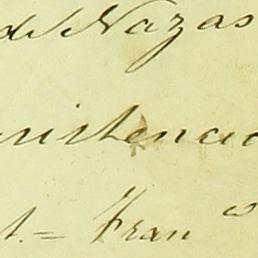 de Nazas
xistencia
t. = Fran co